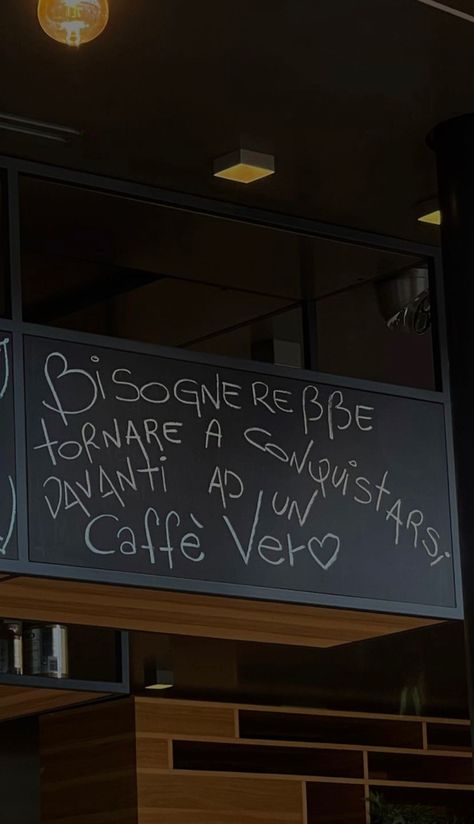 BiSOGNEREBBE
tORNARE A CONQUiStARSi
DAVANti AD UN
Caffè Vero♡